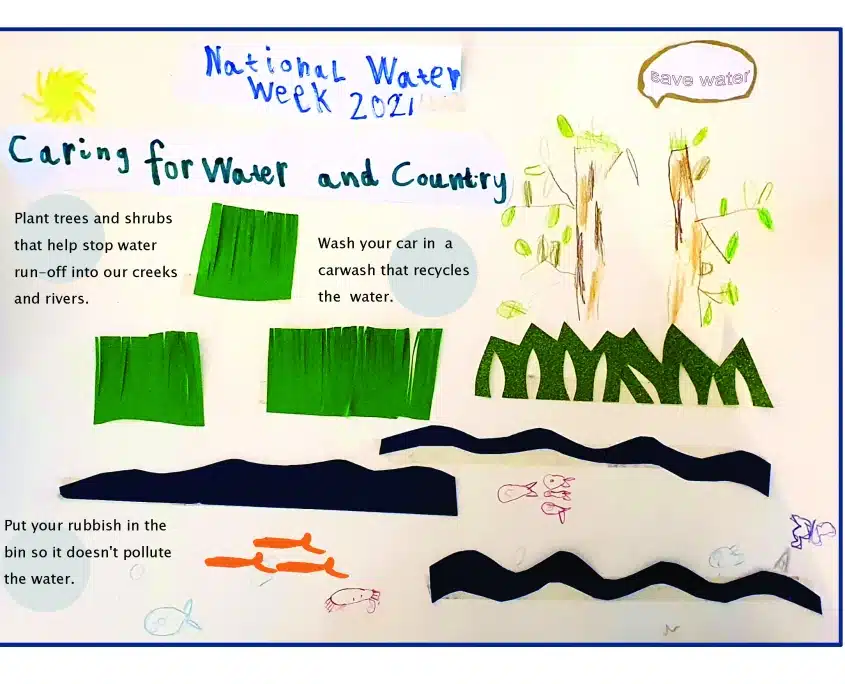 National Water
Week 2021
save water
Caring for Water and Country
Plant trees and shrubs
that help stop water
run-off into our creeks
and rivers.
Wash your car in a
carwash that recycles
the water.
Put your rubbish in the
bin so it doesn't pollute
the water.